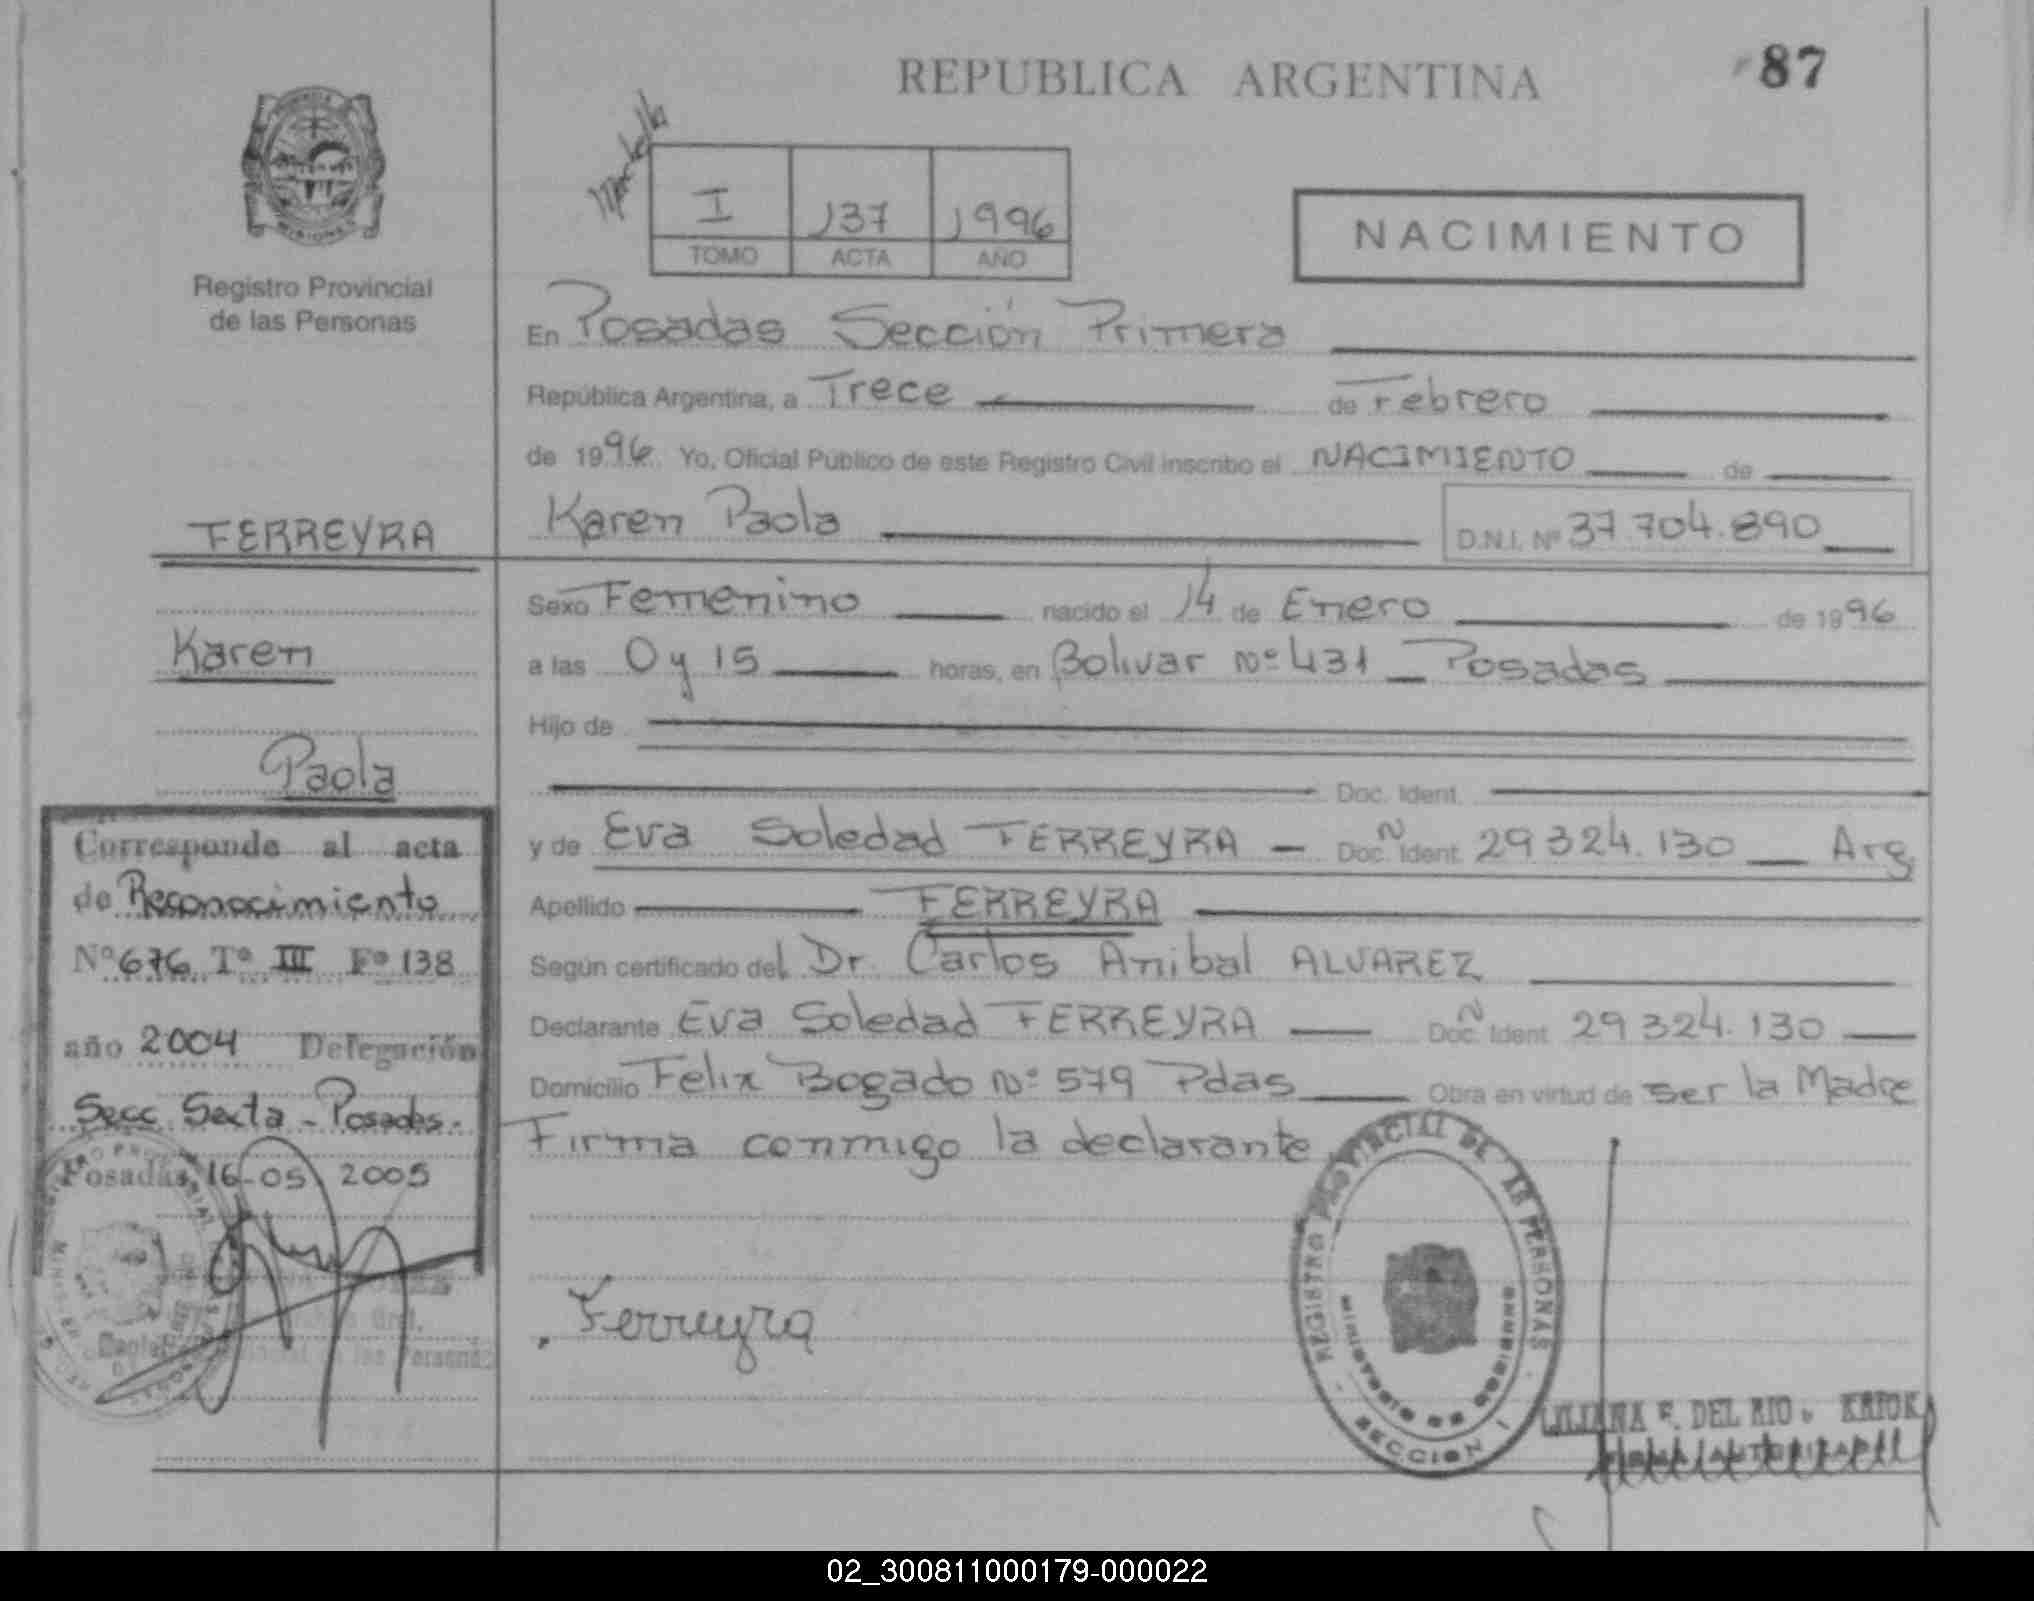 REPUBLICA ARGENTINA
87
I 137 1996
TOMO ACTA AÑO
NACIMIENTO
MISIONES
Registro Provincial
de las Personas
En Posadas Sección Primera
República Argentina, a Trece de Febrero
de 1996 Yo, Oficial Público de este Registro Civil inscribo el NACIMIENTO de
Karen Paola D.N.I. Nº 37.704.890
FERREYRA
Karen
Paola
Sexo Femenino nacido el 14 de Enero de 1996
a las 0 y 15 horas, en Bolivar Nº 431 _ Posadas
Hijo de
Doc. Ident.
y de Eva Soledad FERREYRA - Doc. Ident. 29324.130 _ Arg
Apellido FERREYRA
Según certificado del Dr. Carlos Anibal ALVAREZ
Declarante Eva Soledad FERREYRA Doc. Ident. 29324.130
Domicilio Felix Bogado Nº 579 Pdas Obra en virtud de ser la Madre
Firma conmigo la declarante
Ferreyra
Corresponde al acta
de Reconocimiento
Nº 676 Tº III Fº 138
año 2004 Delegación
Secc. Sexta - Posadas.
Posadas, 16-05 2005
REGISTRO PROVINCIAL DE LAS PERSONAS
MINISTERIO DE GOBIERNO
SECCION I
LILIANA F. DEL RIO
02_300811000179-000022